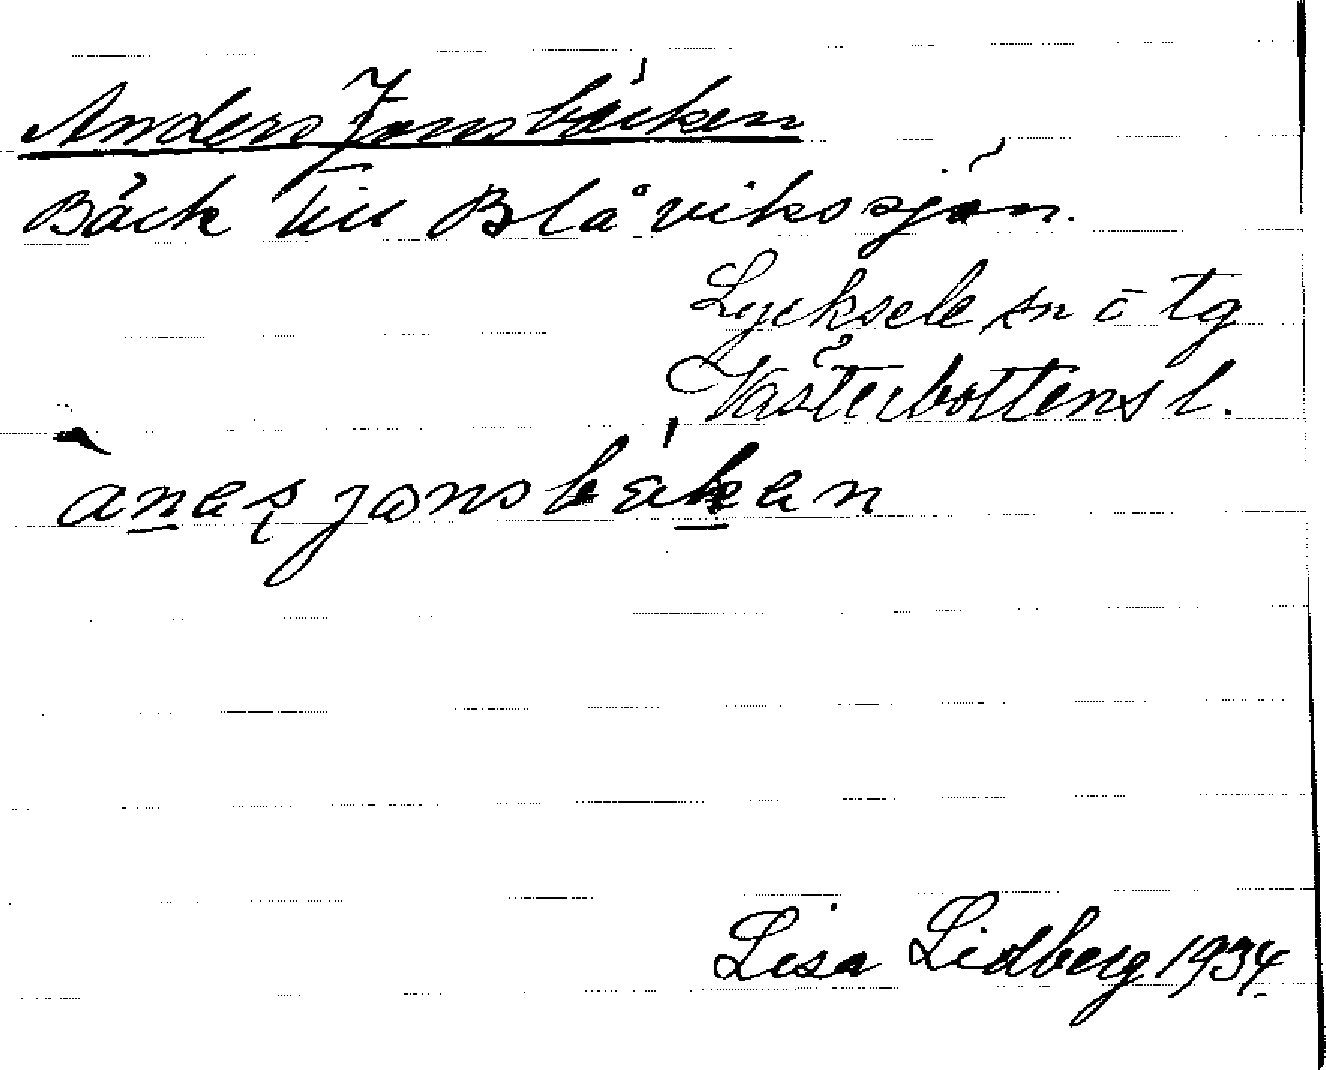 Anders Jonsbäcken
Bäck till Blåviksjön.
Lycksele sn o tg
Västerbottens l.
anaʂ jonsbäkan
Lisa Lidberg 1934.